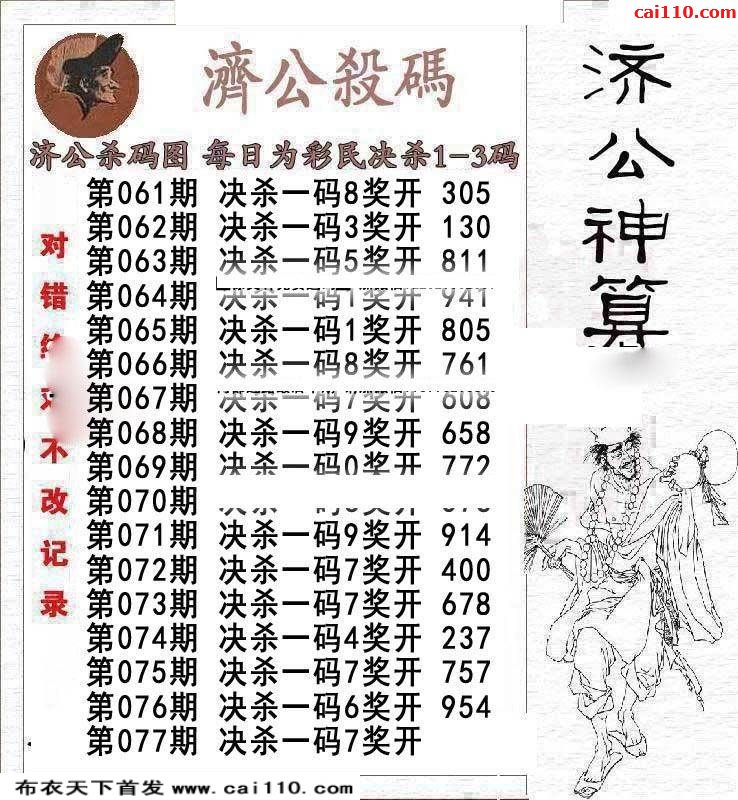 cai110.com
濟公殺碼
济公杀码图 每日为彩民决杀1-3码
第061期 决杀一码8奖开 305
第062期 决杀一码3奖开 130
第063期 决杀一码5奖开 811
第064期 决杀一码1奖开 941
第065期 决杀一码1奖开 805
第066期 决杀一码8奖开 761
第067期 决杀一码7奖开 608
第068期 决杀一码9奖开 658
第069期 决杀一码0奖开 772
第070期
第071期 决杀一码9奖开 914
第072期 决杀一码7奖开 400
第073期 决杀一码7奖开 678
第074期 决杀一码4奖开 237
第075期 决杀一码7奖开 757
第076期 决杀一码6奖开 954
第077期 决杀一码7奖开
对错
不改记录
济公神算
布衣天下首发 www.cai110.com